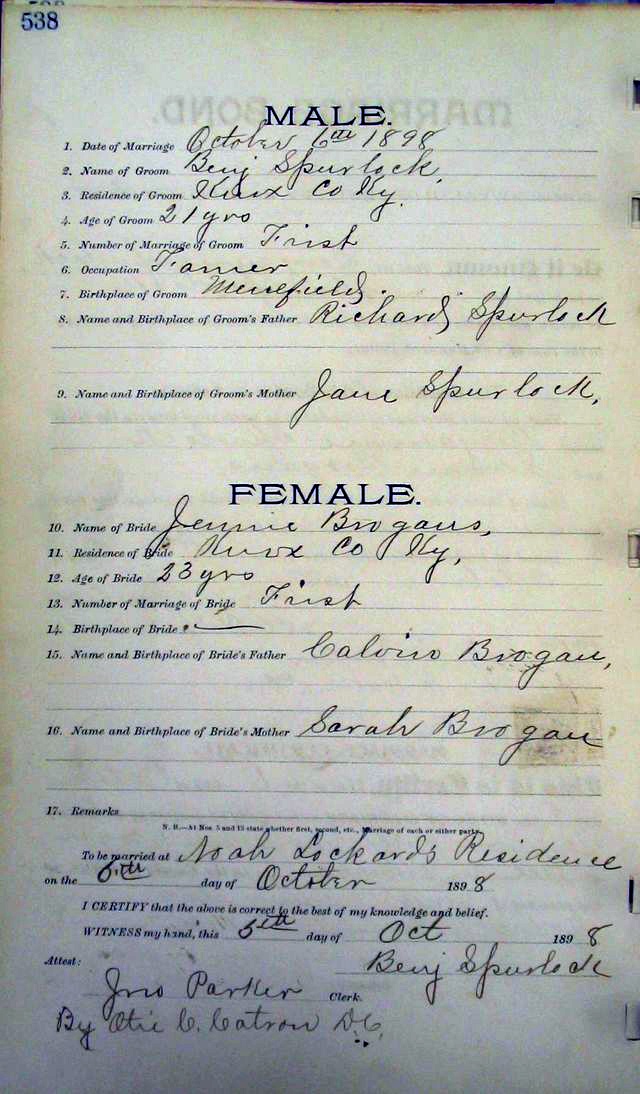 538
MALE.
1. Date of Marriage October 6th 1898
2. Name of Groom Benj Spurlock,
3. Residence of Groom Knox Co Ky.
4. Age of Groom 21 yrs
5. Number of Marriage of Groom First
6. Occupation Farmer
7. Birthplace of Groom
8. Name and Birthplace of Groom's Father Richard Spurlock
9. Name and Birthplace of Groom's Mother Jane Spurlock,
FEMALE.
10. Name of Bride Jennie Brogans,
11. Residence of Bride Knox Co Ky,
12. Age of Bride 23 yrs
13. Number of Marriage of Bride First
14. Birthplace of Bride
15. Name and Birthplace of Bride's Father Calvin Brogan,
16. Name and Birthplace of Bride's Mother Sarah Brogan
17. Remarks
N. B.—At Nos. 5 and 13 state whether first, second, etc., Marriage of each or either party.
To be married at Noah Lockards Residence
on the 6th day of October 1898
I CERTIFY that the above is correct to the best of my knowledge and belief.
WITNESS my hand, this 5th day of Oct 1898
Attest: Benj Spurlock
Jno Parker Clerk.
By Otie C. Catron D.C.